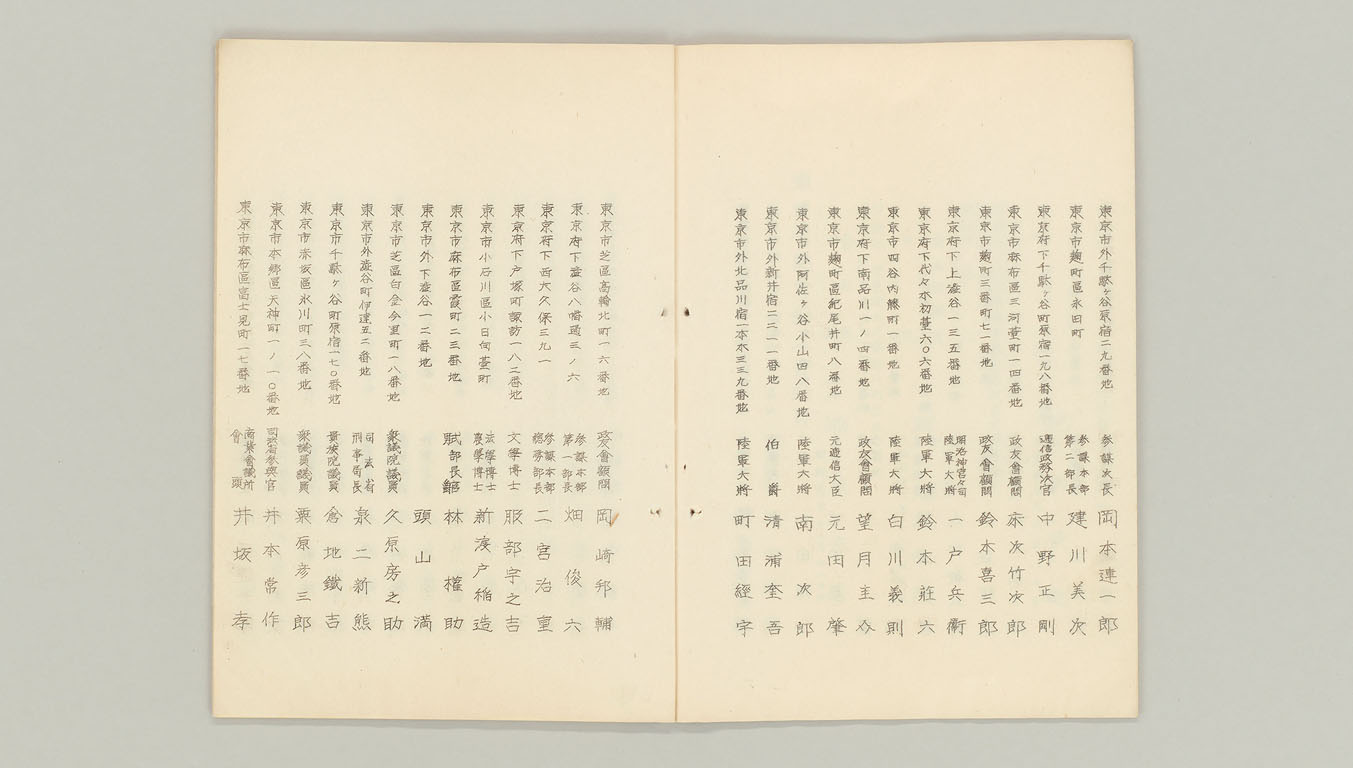 東京市外千駄ヶ谷原宿二九番地 参謀次長 岡本連一郎
東京市麹町區永田町 参謀本部第二部長 建川美次
東京府下千駄ヶ谷町原宿一九八番地 逓信政務次官 中野正剛
東京市麻布區三河薹町一四番地 政友會顧問 床次竹次郎
東京市麹町三番町七一番地 政友會顧問 鈴木喜三郎
東京府下上澁谷一三五番地 明治神宮々司陸軍大將 一戸兵衞
東京府下代々木初薹六〇六番地 陸軍大將 鈴木莊六
東京市四谷内藤町一番地 陸軍大將 白川義則
東京府下南品川一ノ四番地 政友會顧問 望月圭介
東京市麹町區紀尾井町八番地 元逓信大臣 元田肇
東京市外阿佐ヶ谷小山四八番地 陸軍大將 南次郎
東京市外新井宿二二一一番地 伯爵 清浦奎吾
東京市外北品川宿一本木三三九番地 陸軍大將 町田經宇
東京市芝區高輪北町一六番地 政友會顧問 岡崎邦輔
東京府下澁谷八幡通三ノ六 参謀本部第一部長 畑俊六
東京府下西大久保三九一 参謀本部總務部長 二宮治重
東京府下戸塚町諏訪一八二番地 文學博士 服部宇之吉
東京市小石川區小日向薹町 法學博士農學博士 新渡戸稲造
東京市麻布區霞町二三番地 式部長官 林權助
東京市外下澁谷一二番地 頭山満
東京市芝區白金今里町一八番地 衆議院議員 久原房之助
東京市外澁谷町伊達五二番地 司法省刑事局長 泉二新熊
東京市千駄ヶ谷町原宿一七〇番地 貴族院議員 倉地鐵吉
東京市赤坂區氷川町三八番地 衆議員議員 粟原彦三郎
東京市本郷區天神町一ノ一〇番地 司法省参與官 井本常作
東京市麻布區富士見町一七番地 商業會議所會頭 井坂孝